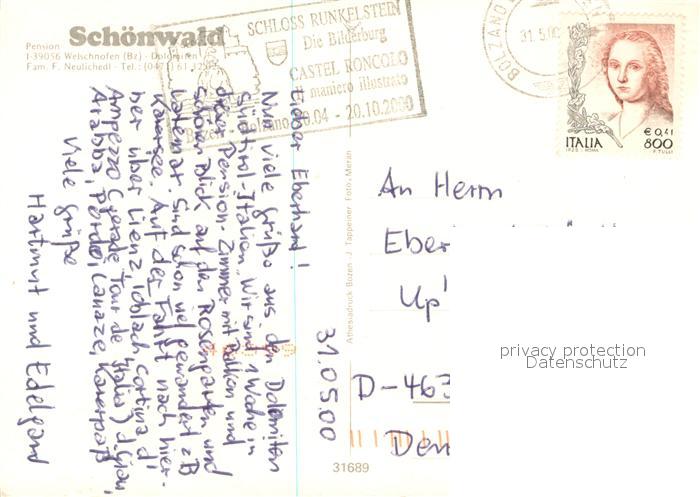 Schönwald
Pension
I-39056 Welschnofen (Bz) - Dolomiten
Fam. F. Neulichedl - Tel.: (0471) 61
SCHLOSS RUNKELSTEIN
Die Bilderburg
CASTEL RONCOLO
maniero illustrato
Bozen - Bolzano 04 - 20.10.2000
BOLZANO
31.5.00
ITALIA
€ 0,41
800
1998 - ROMA
F. TULLI
31.05.00
Lieber Eberhard!
Nun viele Grüße aus den Dolomiten
Südtirol-Italien. Wir sind 1 Woche in
dieser Pension-Zimmer mit Balkon und
schönen Blick auf den Rosengarten und
Latemar. Sind schon viel gewandert z.B
Karersee. Auf der Fahrt nach hier-
her über Lienz, Toblach, Cortina d'
Ampezzo (gerade Tour de Italia)
Arabba, Pordoi, Canazei, Karerpaß
Viele Grüße
Hartmut und Edelgard
Athesiadruck Bozen - J. Tappeiner Foto, Meran
An Herrn
Eber
Up'
D-463
Den
31689
privacy protection
Datenschutz